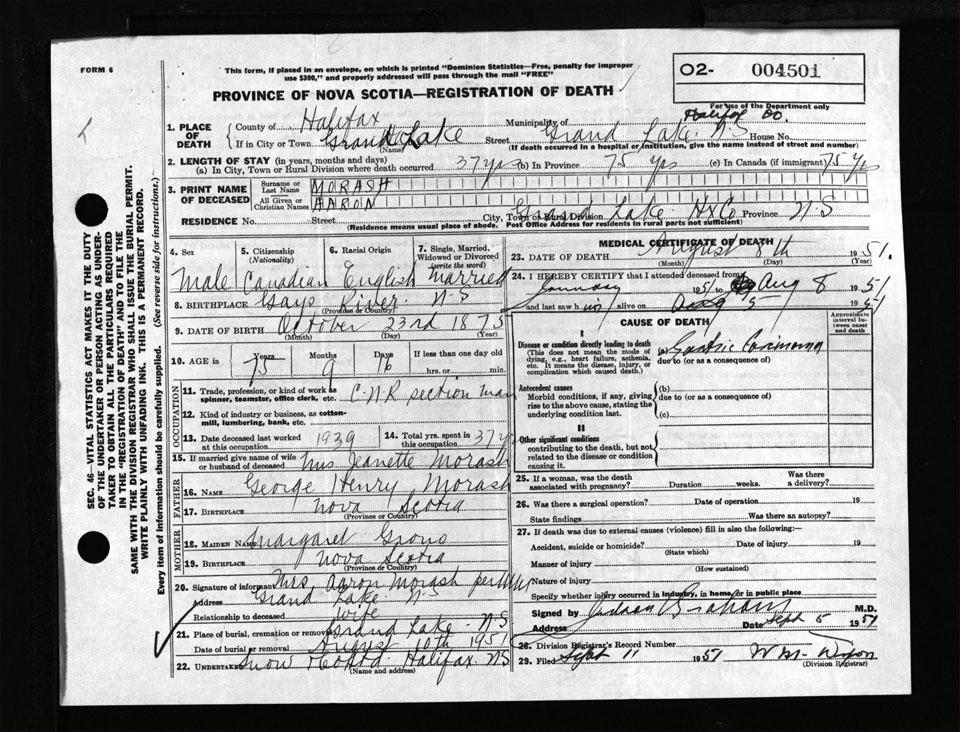 FORM 6
This form, if placed in an envelope, on which is printed "Dominion Statistics—Free, penalty for improper
use $300," and properly addressed will pass through the mail "FREE"
PROVINCE OF NOVA SCOTIA—REGISTRATION OF DEATH
O2- 004501
For use of the Department only
1. PLACE OF DEATH
County of Halifax Municipality of Halifax Co.
If in City or Town Grand Lake (Name) Street Grand Lake N.S House No.
(If death occurred in a hospital or institution, give the name instead of street and number)
2. LENGTH OF STAY (in years, months and days)
(a) In City, Town or Rural Division where death occurred 37 yrs (b) In Province 75 yrs (c) In Canada (if immigrant) 75 yrs
3. PRINT NAME OF DECEASED
Surname or Last Name MORASH
All Given or Christian Names AARON
RESIDENCE No. Street City, Town or Rural Division Grand Lake Hx Co Province N-S
(Residence means usual place of abode. Post Office Address for residents in rural parts not sufficient)
4. Sex 5. Citizenship (Nationality) 6. Racial Origin 7. Single, Married, Widowed or Divorced (write the word)
Male Canadian English Married
8. BIRTHPLACE Gays River N-S
(Province or Country)
9. DATE OF BIRTH October 23rd 1875
(Month) (Day) (Year)
10. AGE in Years Months Days If less than one day old
75 9 16 hrs. or min.
OCCUPATION
11. Trade, profession, or kind of work as spinner, teamster, office clerk, etc. C.N.R section man
12. Kind of industry or business, as cotton-mill, lumbering, bank, etc.
13. Date deceased last worked at this occupation 1939
14. Total yrs. spent in this occupation 37 yrs
15. If married give name of wife or husband of deceased Mrs Jeanette Morash
FATHER
16. NAME George Henry Morash
17. BIRTHPLACE Nova Scotia
(Province or Country)
MOTHER
18. MAIDEN NAME Margaret Grono
19. BIRTHPLACE Nova Scotia
(Province or Country)
20. Signature of informant Mrs. Aaron Morash per
Address Grand Lake N-S
Relationship to deceased wife
21. Place of burial, cremation or removal Grand Lake - N-S
Date of burial or removal August 10th 1951
22. UNDERTAKER Snow & Co Ltd. Halifax NS
(Name and address)
MEDICAL CERTIFICATE OF DEATH
23. DATE OF DEATH August 8th 1951.
(Month) (Day)
24. I HEREBY CERTIFY that I attended deceased from
January 1951 to Aug 8 1951
and last saw him alive on Aug 5 1951
CAUSE OF DEATH
Approximate interval between onset and death
I
Disease or condition directly leading to death
(This does not mean the mode of dying, e.g., heart failure, asthenia, etc. It means the disease, injury, or complication which caused death.)
(a) Gastric Carcinoma
due to (or as a consequence of)
Antecedent causes
Morbid conditions, if any, giving rise to the above cause, stating the underlying condition last.
(b)
due to (or as a consequence of)
(c)
II
Other significant conditions
contributing to the death, but not related to the disease or condition causing it.
25. If a woman, was the death associated with pregnancy? Duration weeks. Was there a delivery?
26. Was there a surgical operation? Date of operation 19
State findings Was there an autopsy?
27. If death was due to external causes (violence) fill in also the following:—
Accident, suicide or homicide? Date of injury 19
(State which)
Manner of injury
(How sustained)
Nature of injury
Specify whether injury occurred in industry, in home, or in public place
Signed by Judson Graham M.D.
Address Date Sept 5 1951
28. Division Registrar's Record Number
29. Filed Sept 11 1951 W M Dixon
(Division Registrar)
SEC. 46—VITAL STATISTICS ACT MAKES IT THE DUTY
OF THE UNDERTAKER OR PERSON ACTING AS UNDER-
TAKER TO OBTAIN ALL THE PARTICULARS REQUIRED
IN THE "REGISTRATION OF DEATH" AND TO FILE THE
SAME WITH THE DIVISION REGISTRAR WHO SHALL ISSUE THE BURIAL PERMIT.
WRITE PLAINLY WITH UNFADING INK. THIS IS A PERMANENT RECORD.
Every item of information should be carefully supplied. (See reverse side for instructions.)